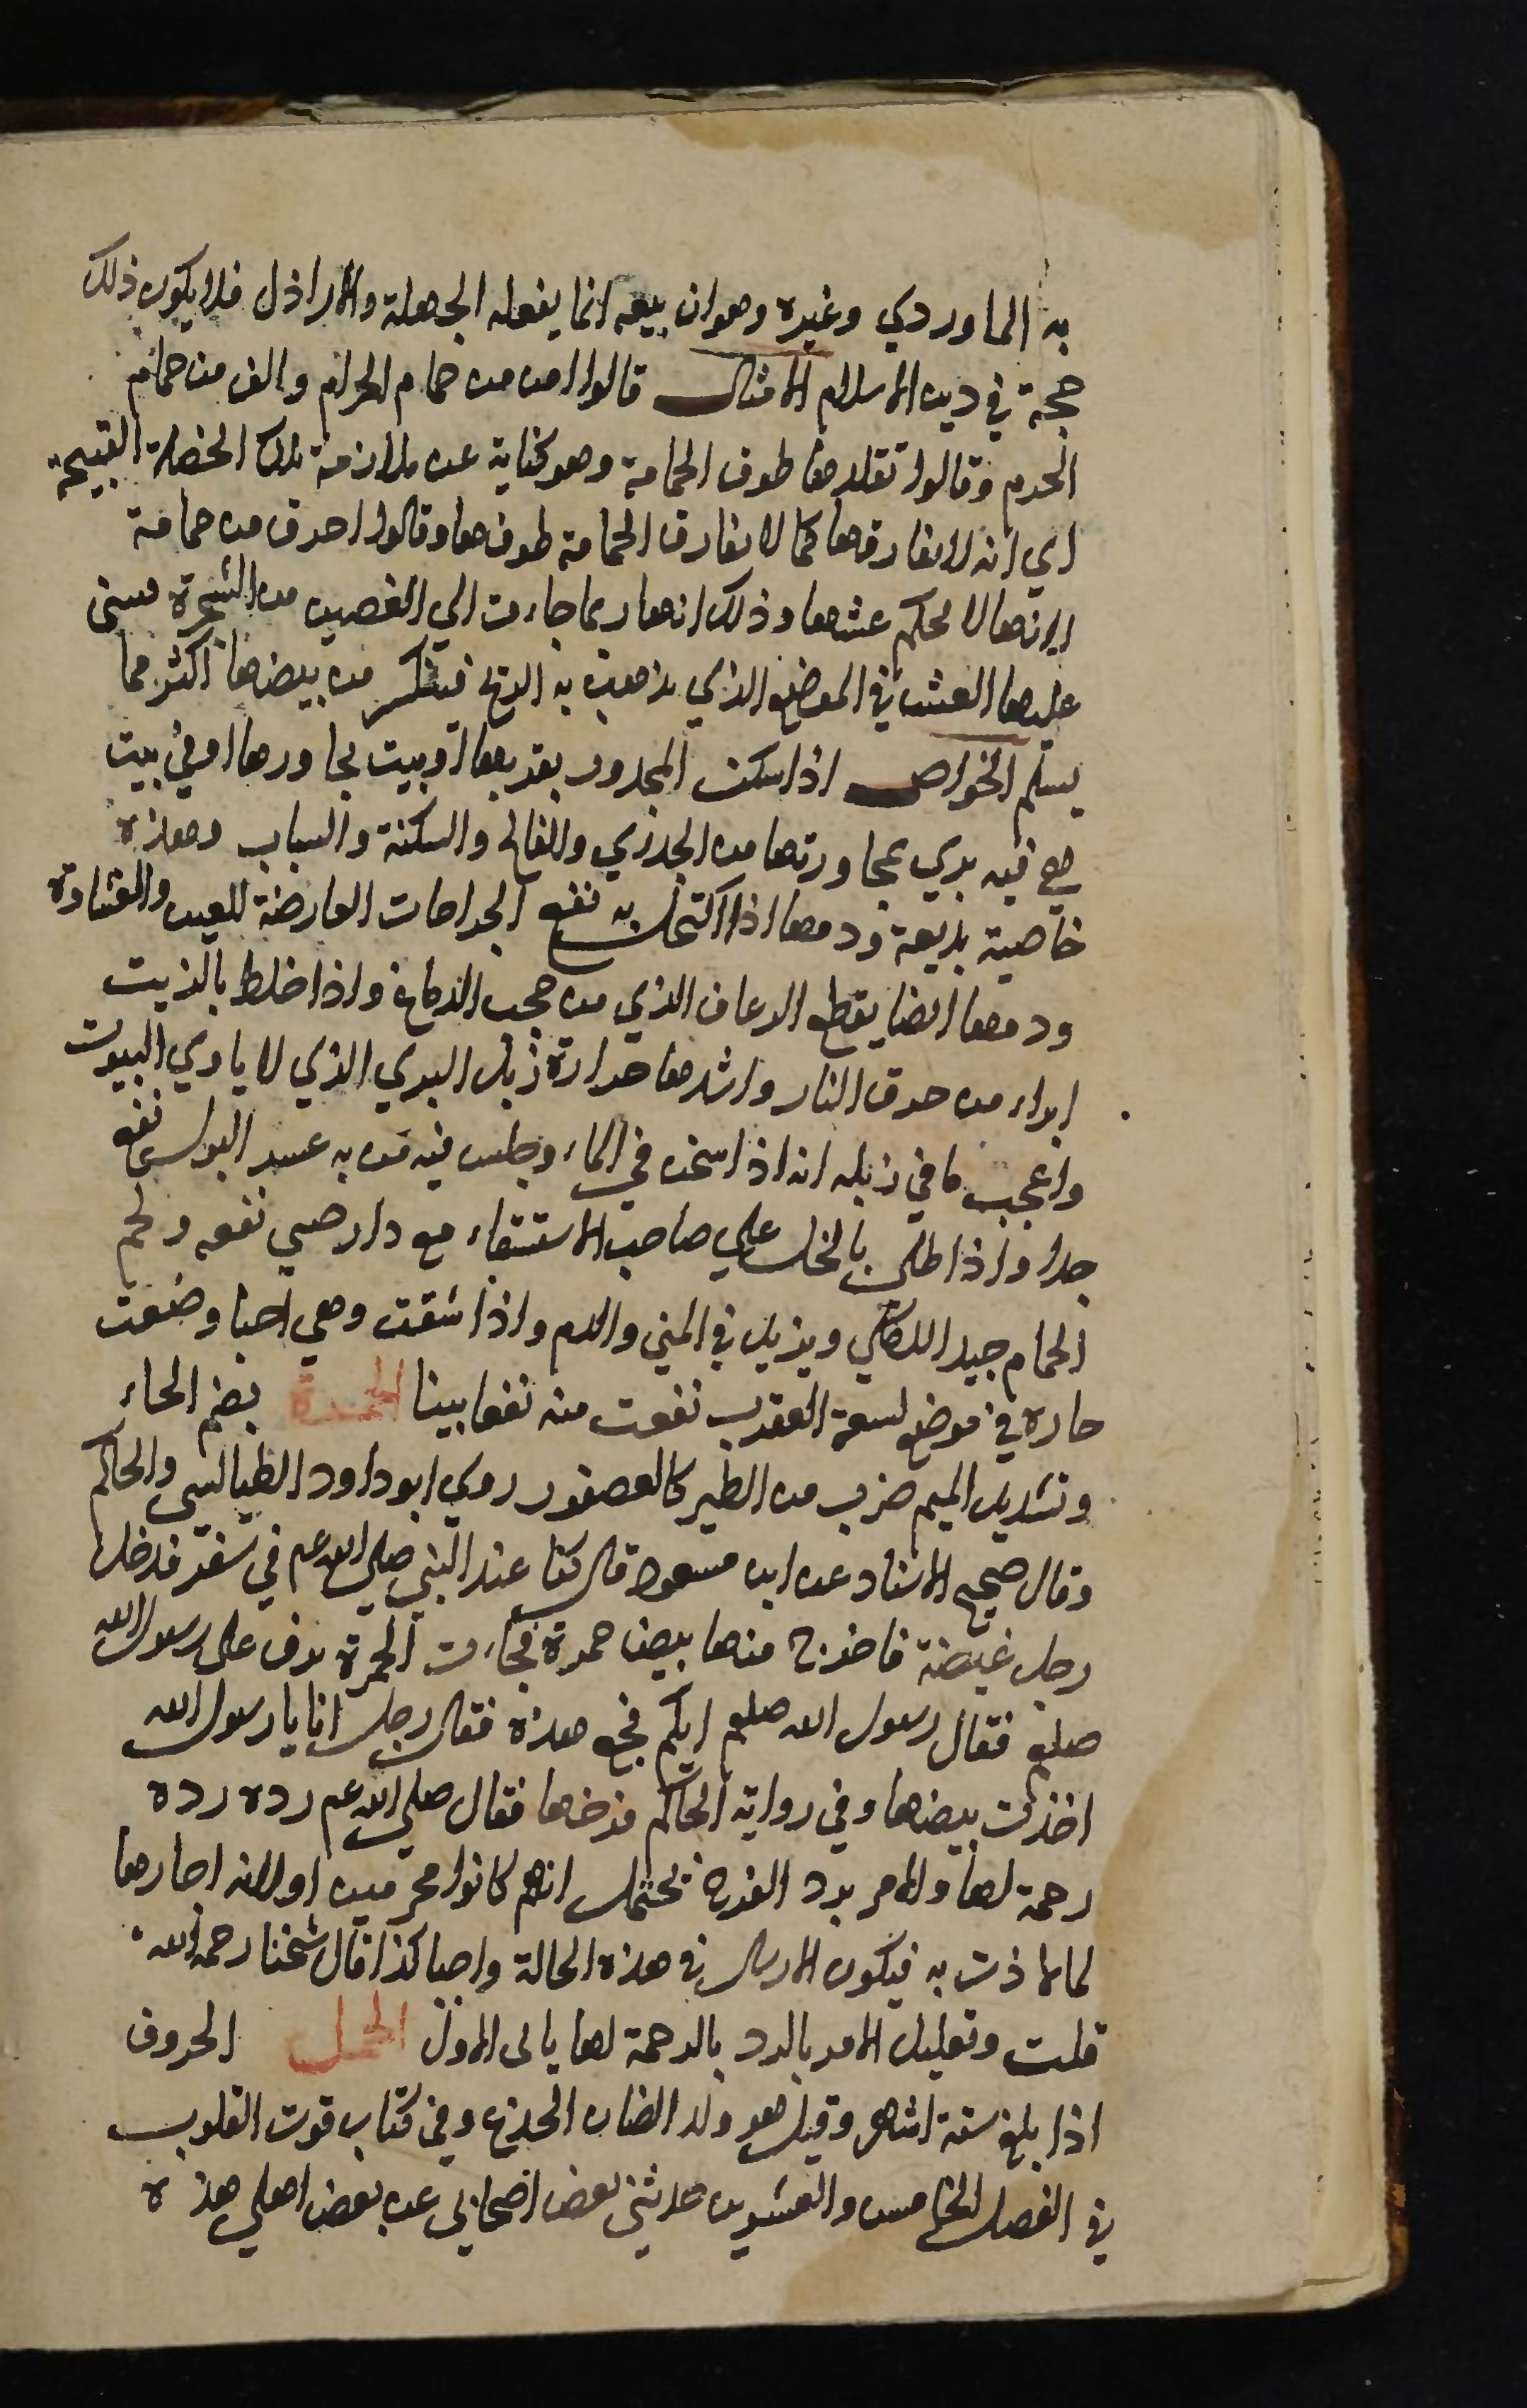 به الماوردي وغيره وهو ان بيعه انما يفعله الجهلة والاراذل فلا يكون ذلك
حجة في دين الاسلام الامثال قالوا امن من حمام الحرام والف من حمام
الحرم وقالوا تقلدها طوق الحمامة وهو كناية عن ملازمة تلك الخصلة القبيحة
اي انه لا يفارقها كما لا يفارق الحمامة طوقها وقالوا اخرق من حمامة
لانها لا تحكم عشها وذلك انها ربما جاءت الي الغصين من الشجرة فتبنى
عليها العش في الموضع الذي يذهب به الريح فينكسر من بيضها اكثر مما
يسلم الخواص اذا سكن المجدور بقربها او بيت يجاورها او في بيت
هي فيه بري بمجاورتها من الجدري والفالج والسكتة والسبات وهذه
خاصية بديعة ودمها اذا اكتحل به نفع الجراحات العارضة للعين والغشاوة
ودمها ايضا يقطع الرعاف الذي من حجب الدماغ واذا خلط بالزيت
ابراء من حرق النار واشدها حرارة زبل البري الذي لا ياوي البيوت
واعجب ما في زبله انه اذا سخن في الماء وجلس فيه من به عسر البول نفع
جدا واذا طلي بالخل علي صاحب الاستسقاء مع دارصيني نفعه ولحم
الحمام جيد للكلي ويزيد في المني والدم واذا شقت وهي احيا وضعت
حارة في موضع لسعة العقرب نفعت منه نفعا بينا الحمرة بضم الحاء
وتشديد الميم ضرب من الطير كالعصفور روي ابو داود الطيالسي والحاكم
وقال صحيح الاسناد عن ابن مسعود قال كنا عند النبي صلي الله عم في سفر فدخل
رجل غيضة فاخرج منها بيض حمرة فجاءت الحمرة ترف على رسول الله
صلعم فقال رسول الله صلعم ايكم فجع هذه فقال رجل انا يا رسول الله
اخذت بيضها وفي رواية الحاكم فرخها فقال صلي الله عم رده رده
رحمة لها والامر برد الفرخ يحتمل انهم كانوا محرمين او لانه اجارها
لما لاذت به فيكون الارسال في هذه الحالة واجبا كذا قال شيخنا رحمه الله
قلت وتعليل الامر بالرد بالرحمة لها يابى الاول الحمل الخروف
اذا بلغ ستة اشهر وقيل هو ولد الضان الجذع وفي كتاب قوت القلوب
في الفصل الخامس والعشرين حدثني بعض اصحابي عن بعض اهل هذه